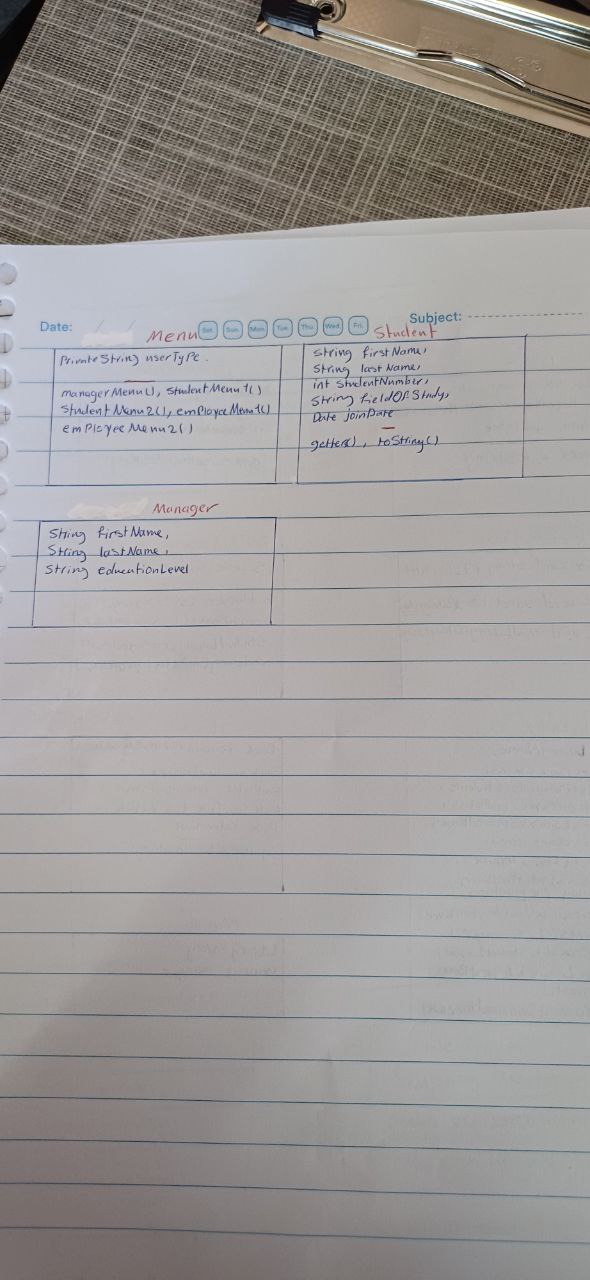 Date:
Subject:
Sat. Sun. Mon. Tue. Thu. Wed. Fri.
Menu
Private String userType.
managerMenu(), StudentMenu1()
StudentMenu2(), employeeMenu1()
employeeMenu2()
Student
String firstName,
String lastName,
int studentNumber,
String fieldOfStudy,
Date joinDate
getters(), toString()
Manager
String firstName,
String lastName,
String educationLevel